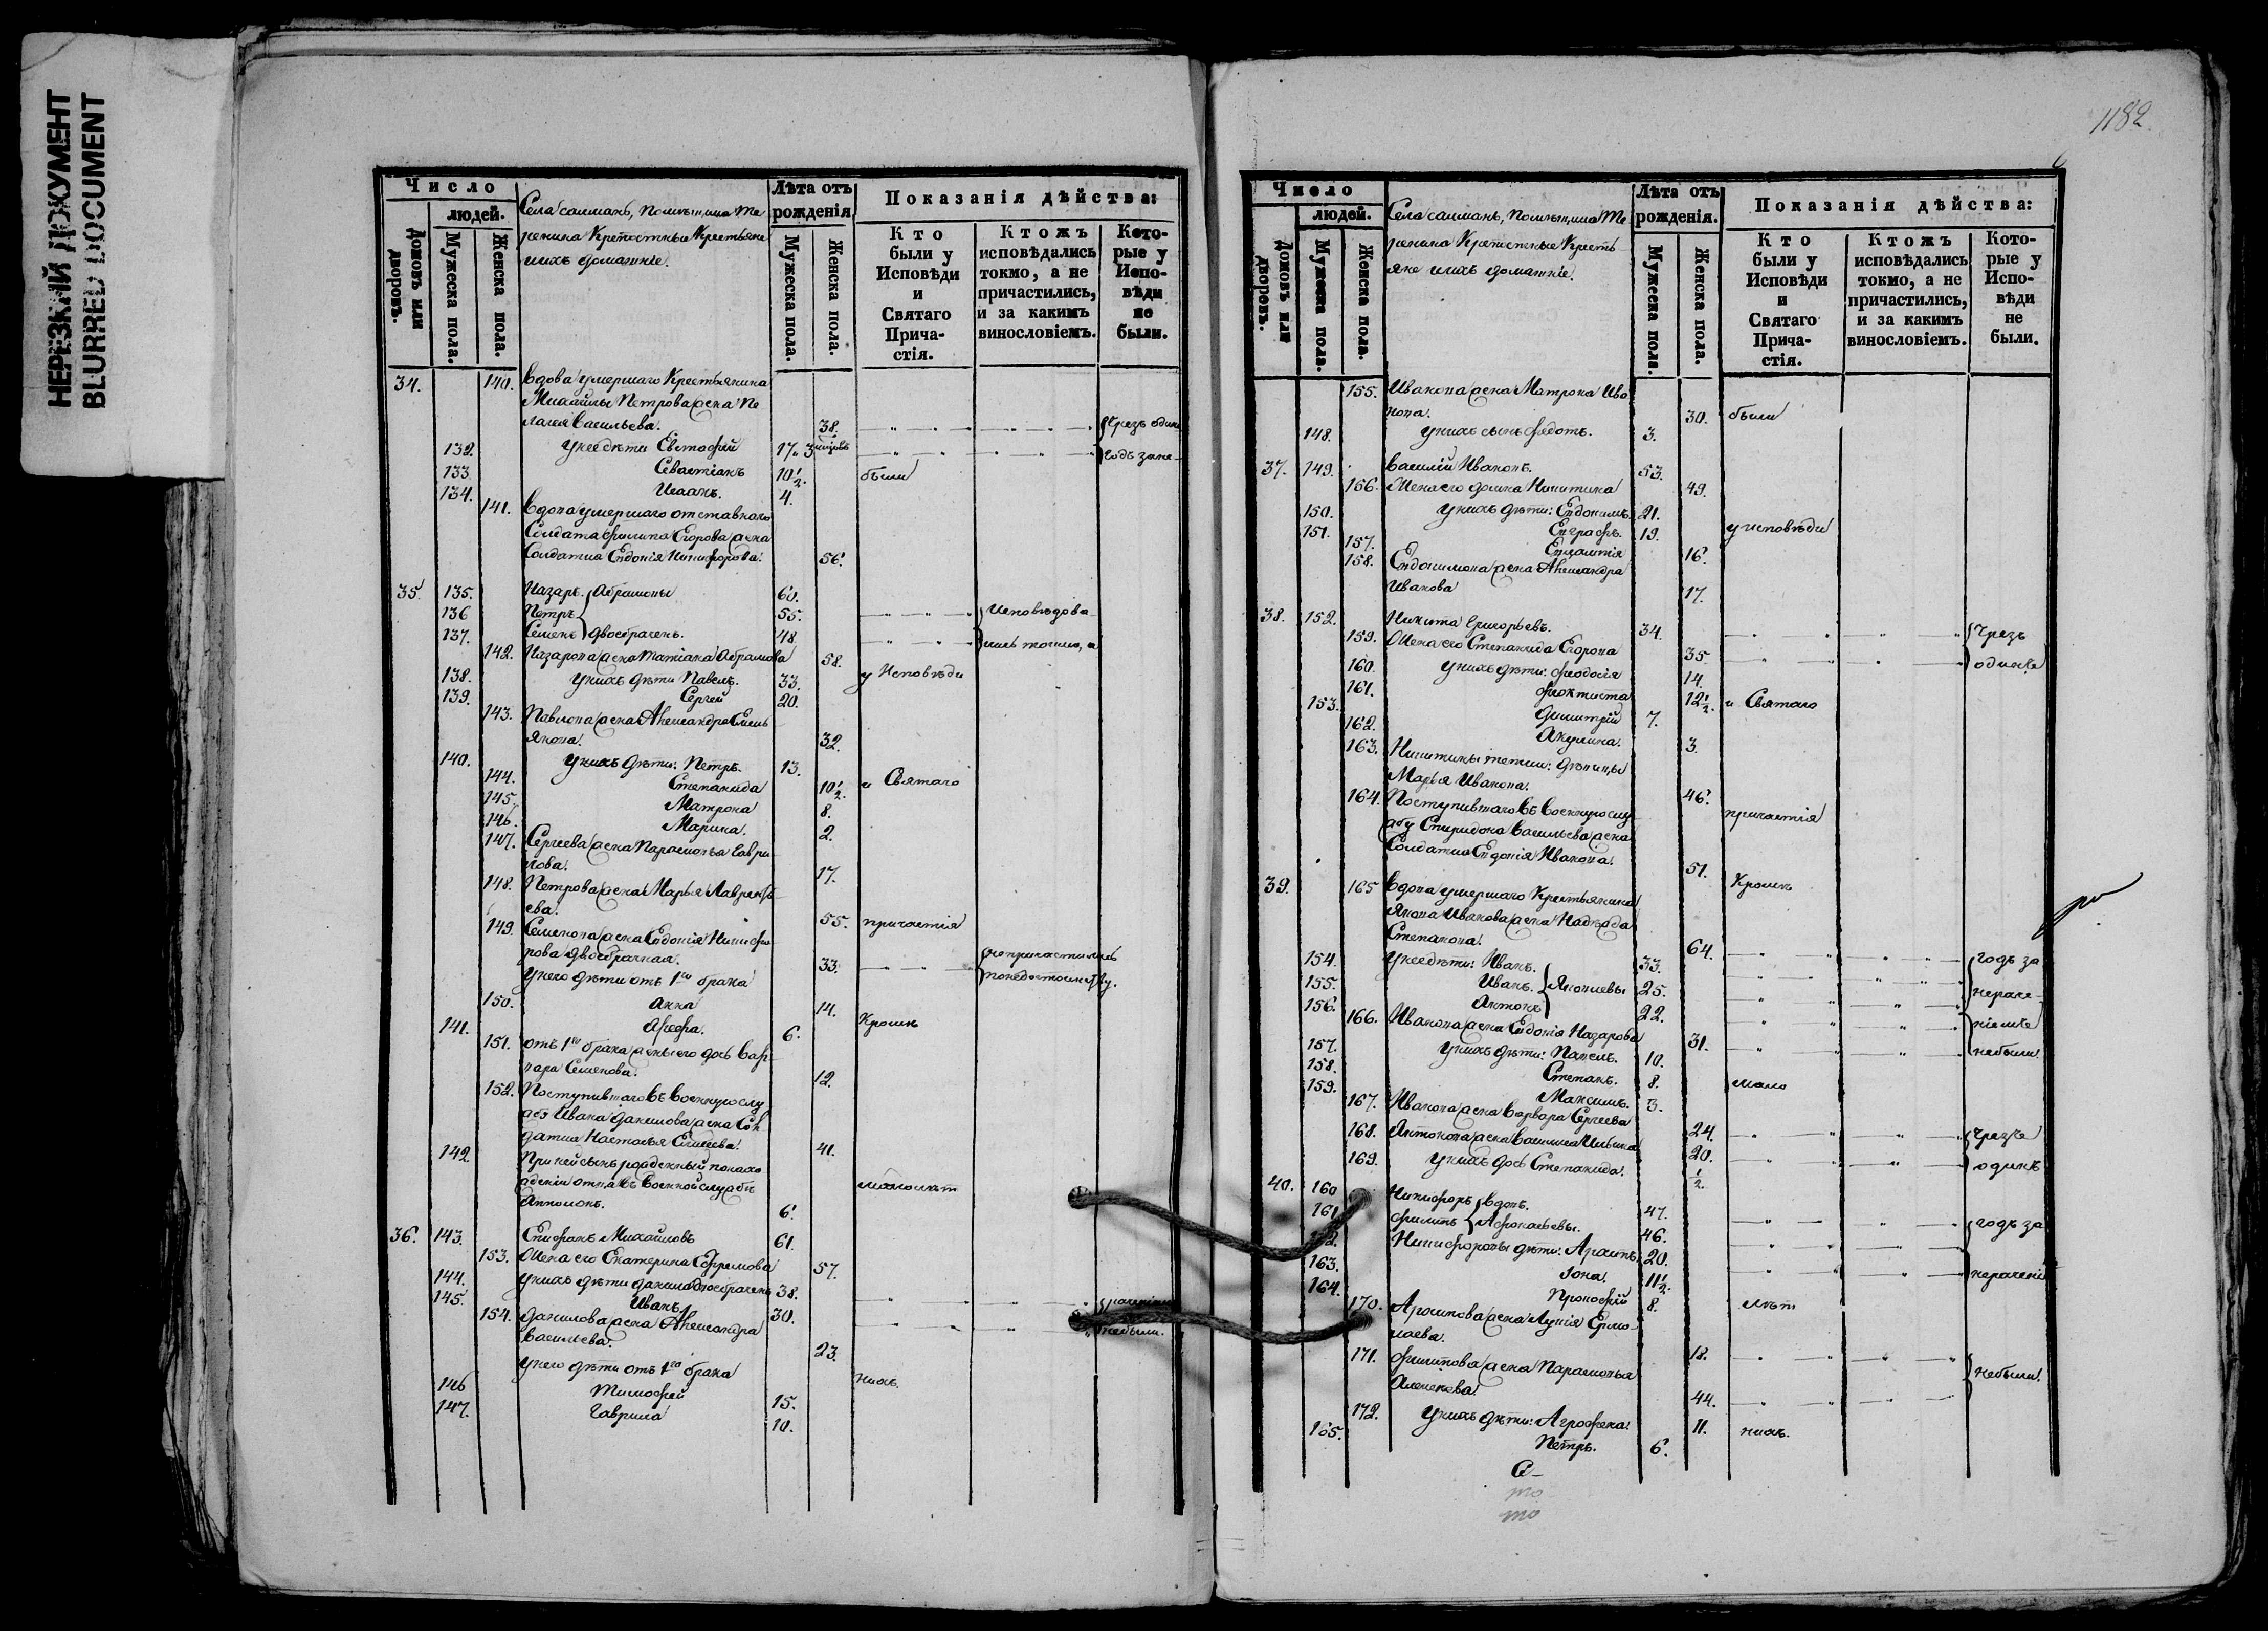 НЕРЕЗКИЙ ДОКУМЕНТ
BLURRED DOCUMENT
Число
людей.
Домовъ или дворовъ.
Мужеска пола.
Женска пола.
Села помѣщика
Крепостные Крестьяне
ихъ домашніе.
Лѣта отъ рожденія
Мужеска пола.
Женска пола.
Показанія дѣйства:
Кто были у Исповѣди и Святаго Прича-стія.
Ктожъ исповѣдались токмо, а не причастились, и за какимъ винословіемъ.
Кото-рые у Испо-вѣди не были.
34. 140. Вдова умершаго Крестьянина
Михайлы Петрова жена Пе
лагея Васильева. 38. Чрезъ одинъ
132. У нее дѣти Евстафей 17.
133. Севастіанъ 10½. были
134. Исаакъ. 4.
141. Вдова умершаго отставнаго
Солдата Филипа Егорова жена
Солдатка Евдокія Никифорова. 56.
35. 135. Назаръ. Абрамовы 60.
136 Петръ 55. Исповѣдова
137. Семенъ двообраченъ. 48
142. Назарова жена Татіана Абрамова 58.
138. У нихъ дѣти Павелъ. 33. у Исповѣди
139. Сергей 20.
143. Павлова жена Александра Емель
янова. 32.
140. У нихъ дѣти: Петръ. 13.
144. Степанида 10½. и Святаго
145. Матрона 8.
146. Марина. 2.
147. Сергеева жена Парасковья Гаври
лова. 17.
148. Петрова жена Марья Лаврентье
ва. 55. причастія
149. Семенова жена Евдокія Никифо
рова двообрачная. 33. непричастились
У него дѣти отъ 1го брака
150. Анна 14.
141. 6. Кромѣ
151. отъ 1го брака жены его дочь Вар
вара Семенова. 12.
152. Поступившаго въ военную слу
жбу Ивана Данилова жена Сол
датка Настасья Елисеева. 41.
142. При ней сынъ рожденный
въ военной службѣ
6.
36. 143. Епифанъ Михайловъ 61.
153. Жена его Екатерина Ефремова 57.
144. У нихъ дѣти Данило двообраченъ 38.
145. Иванъ 30.
154. Данилова жена Александра
Васильева. 23. небыли.
У него дѣти отъ 1го брака
146 Тимофей 15. нихъ.
147. Гаврила 10.
1182
Число
людей.
Домовъ или дворовъ.
Мужеска пола.
Женска пола.
Села помѣщика
Крепостные Кресть
яне ихъ домашніе.
Лѣта отъ рожденія.
Мужеска пола.
Женска пола.
Показанія дѣйства:
Кто были у Исповѣди и Святаго Прича-стія.
Ктожъ исповѣдались токмо, а не причастились, и за какимъ винословіемъ.
Кото-рые у Испо-вѣди не были.
155. Иванова жена Матрона Ива
нова. 30. были
148. У нихъ сынъ Федотъ. 3.
37. 149. Василій Ивановъ. 53.
156. Жена его Домна Никитина 49.
150. У нихъ дѣти: Евдокимъ 21.
151. Евграфъ. 19. у исповѣди
157. Евлампія 16.
158. Евдокимова жена Александра
Иванова 17.
38. 152. Никита Григорьевъ. 34. Чрезъ
159. Жена его Степанида Егорова 35 одинъ
160. У нихъ дѣти: Феодосія 14.
161. Феоктиста 12½. и Святаго
153. Димитрій 7.
162. Акулина. 3.
163. Никитины тетки: дѣвицы
Марья Иванова. 46.
164. Поступившаго въ военную слу
жбу Спиридона Васильева жена причастія
Солдатка Евдокія Иванова. 51.
39. 165 Вдова умершаго Крестьянина Кромѣ
Якова Иванова жена Надежда
Степанова. 64.
154. У нее дѣти: Иванъ. 33. годъ за
155. Иванъ. Яковлевы 25.
156. Антонъ 22. нераче-
166. Иванова жена Евдокія Назарова 31. ніемъ
157. У нихъ дѣти: Павелъ. 10. небыли
158. Степанъ. 8. мало
159. Максимъ. 3.
167. Иванова жена Варвара Сергеева 24. Чрезъ
168. Антонова жена Василиса Ильина 20. одинъ
169. У нихъ дочь Степанида. ½
40. 160 Никифоръ вдовъ. 47. годъ за
161 Филипъ Афонасьевы. 46.
162. Никифоровы дѣти: Архипъ 20. нераченіе
163. Іона. 11½.
164. Прокофій 8. лѣтн
170. Архипова жена Лукія Ермо-
лаева. 18.
171. Филипова жена Парасковья небыли.
Алексеева. 44.
172. У нихъ дѣти: Агрофена. 11. нихъ.
165. Петръ. 6.